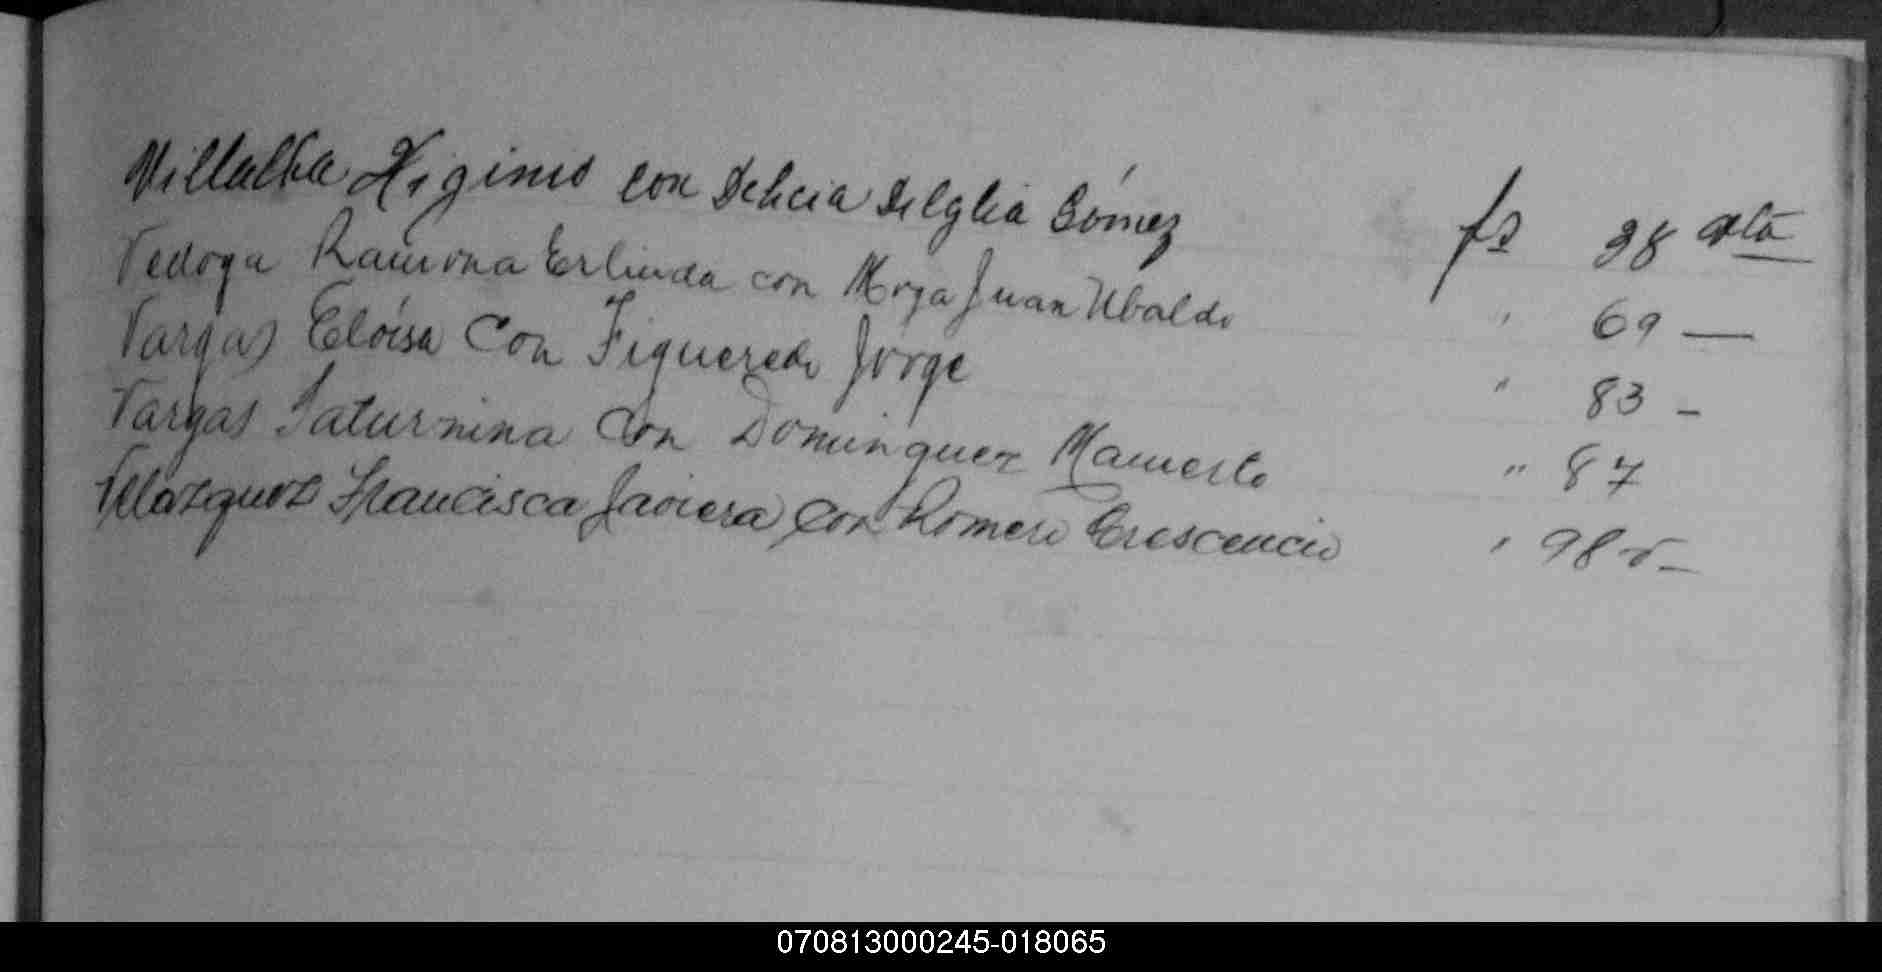 Villalba Higinio con Delicia Delglia Gómez fs 38 vlta
Vedoya Ramona Erlinda con Moya Juan Ubaldo " 69 —
Vargas Eloísa Con Figueredo Jorge " 83 –
Vargas Saturnina Con Dominguez Mamerto " 87
Velazquez Francisca Javiera Con Romero Crescencio " 98 v–
070813000245-018065